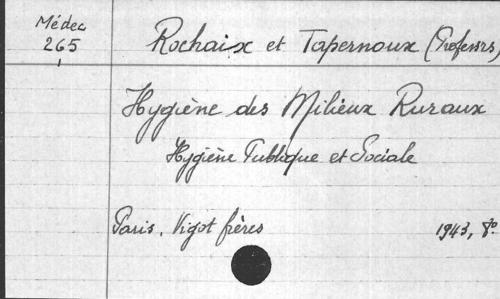 Médec
265
Rochaix et Tapernoux (Profenrs,)
Hygiène des Milieux Ruraux
Hygiène Publique et Sociale
Paris. Vigot frères 1943, 8º